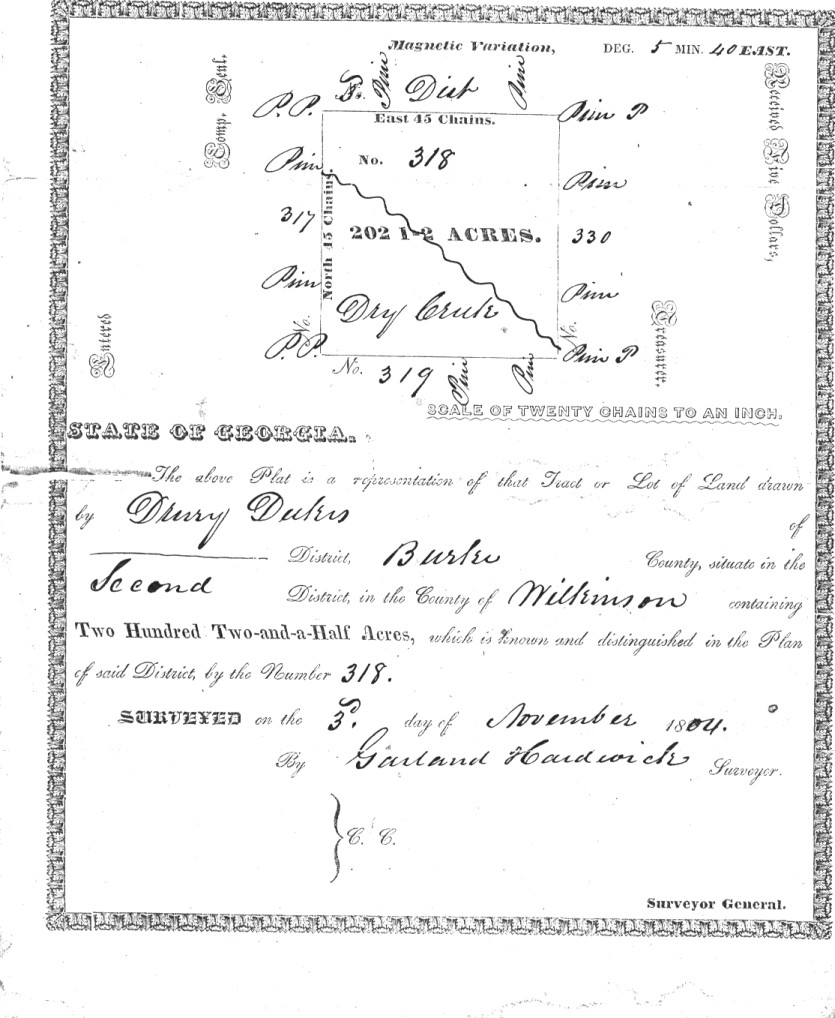 Magnetic Variation, DEG. 5 MIN. 40 EAST.
Comp. Genl.
Received Five Dollars,
Treasurer.
Entered
3d. Dist
Pine
Pine
P. P.
East 45 Chains.
Pine P
Pine
No. 318
Pine
317
North 45 Chains.
202 1-2 ACRES.
330
Pine
Dry Creek
Pine
No.
No.
P. P.
Pine P
No. 319
Pine
Pine
SCALE OF TWENTY CHAINS TO AN INCH.
STATE OF GEORGIA.
The above Plat is a representation of that Tract or Lot of Land drawn
by Drury Dukes of
District, Burke County, situate in the
Second District, in the County of Wilkinson containing
Two Hundred Two-and-a-Half Acres, which is known and distinguished in the Plan
of said District, by the Number 318.
SURVEYED on the 3d. day of November 1804.
By Garland Hardwick Surveyor.
} C. C.
Surveyor General.